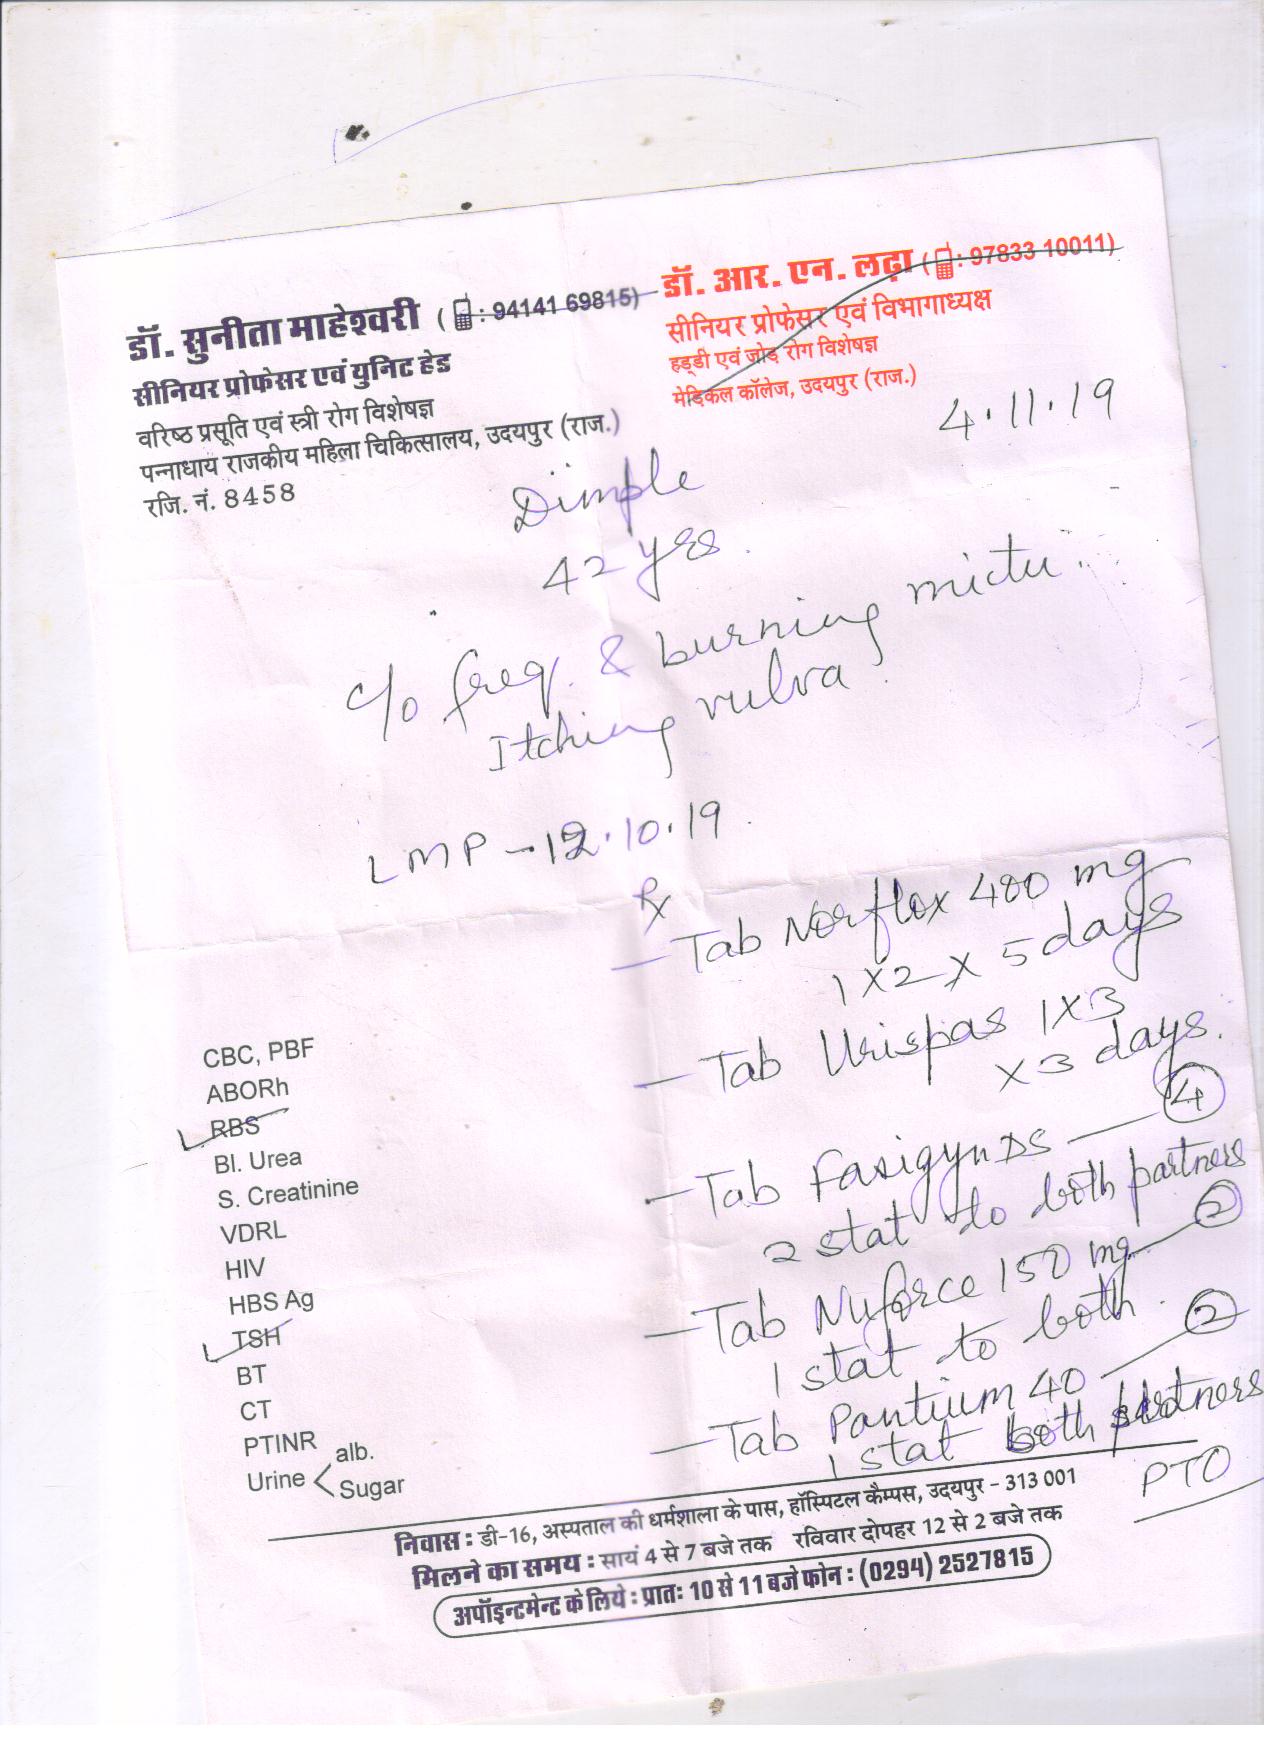 डॉ. सुनीता माहेश्वरी ( : 94141 69815)
सीनियर प्रोफेसर एवं युनिट हेड
वरिष्ठ प्रसूति एवं स्त्री रोग विशेषज्ञ
पन्नाधाय राजकीय महिला चिकित्सालय, उदयपुर (राज.)
रजि. नं. 8458
डॉ. आर. एन. लढ़ा ( : 97833 10011)
सीनियर प्रोफेसर एवं विभागाध्यक्ष
हड्डी एवं जोड़ रोग विशेषज्ञ
मेडिकल कॉलेज, उदयपुर (राज.)
4.11.19
Dimple
42 yrs
c/o freq. & burning mictu.
Itching vulva
LMP - 12.10.19
Rx
- Tab Norflox 400 mg
1 x 2 x 5 days
- Tab Urispas 1 x 3
x 3 days.
- Tab Fasigyn DS — 4
2 stat to both partners
- Tab Nuforce 150 mg — 2
1 stat to both.
- Tab Pantium 40 — 2
1 stat both partners
PTO
CBC, PBF
ABORh
RBS
Bl. Urea
S. Creatinine
VDRL
HIV
HBS Ag
TSH
BT
CT
PTINR
Urine < alb.
Sugar
निवास : डी-16, अस्पताल की धर्मशाला के पास, हॉस्पिटल कैम्पस, उदयपुर - 313 001
मिलने का समय : सायं 4 से 7 बजे तक रविवार दोपहर 12 से 2 बजे तक
अपॉइन्टमेन्ट के लिये : प्रातः 10 से 11 बजे फोन : (0294) 2527815